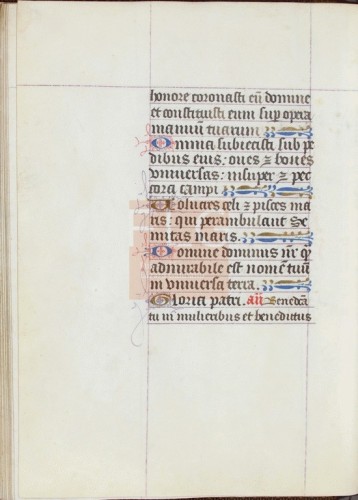 honore coronasti eū domine
et constituisti eum sup opera
manuū tuarum
Omnia subiecisti sub pe
dibus eius: oues ⁊ boues
vniuersas: insuper ⁊ pec
cora campi
Volucres celi ⁊ pisces ma
ris: qui perambulant se
mitas maris.
Domine dominus nr̄ qͣ
admirabile est nomē tuū
in vniuersa terra.
Gloria patri. añ Benedc̄a
tu in mulieribus et benedictus